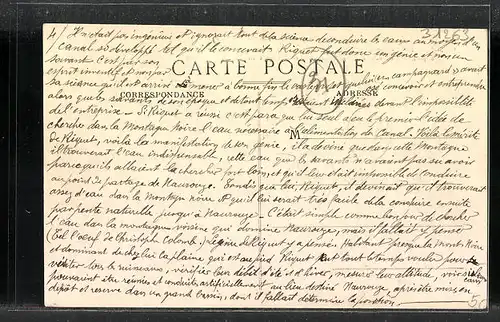 4) N'était pas ingénieur et ignorait tout de la science de conduire les eaux au moyen d'un
canal si développé tel qu'il le concevait Riquet fut donc un génie et non un
savant C'est par son
esprit inventif et non par
CARTE POSTALE
la science qu'il est arrivé à mener à bonne fin
CORRESPONDANCE
ADRESSE
alors que les savants de son époque et de tout temps l'impossibilité
de l'entreprise - Si Riquet a réussi c'est parce que lui seul a eu le premier l'idée de
chercher dans la Montagne Noire l'eau nécessaire à l'alimentation du Canal. Voilà le mérite
M
de Riquet, voilà la manifestation de son génie, il a deviné que dans cette Montagne
il trouverait l'eau indispensable, cette eau que les savants n'avaient pas su voir
parce qu'ils allaient la chercher fort loin et qu'il leur était impossible de conduire
au point de partage de Naurouze. Tandis que lui, Riquet, il devinait qu'il trouverait
assez d'eau dans la Montagne noire et qu'il lui serait très facile de la conduire ensuite
par pente naturelle jusqu'à Naurouze - C'était simple comme bonjour de chercher
l'eau dans la montagne voisine qui domine Naurouze, mais il fallait y penser
(Cel l'oeuf de Christophe Colomb) Le génie de Riquet y a pensé. Habitant presque la Mont. Noire
et dominant de chez lui la plaine qui est au pied Riquet put tout le temps voulu pour
visiter tous les ruisseaux, vérifier leur débit d'été et d'hiver, mesurer leur altitude, voir si ces eaux
pouvaient être réunies et conduites artificiellement au lieu destiné Naurouze, après être mises en
dépôt et réserve dans un grand bassin, dont il fallait déterminer la position
31263
50